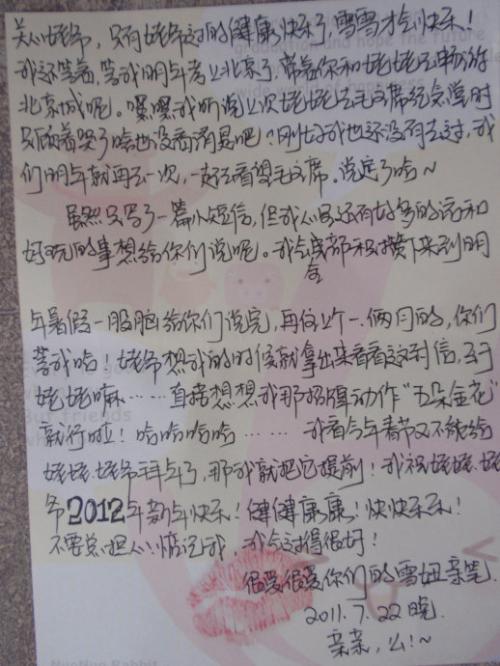 关心姥爷，只有姥爷过的健康快乐了，雪雪才会快乐！
我还等着，等我明年考上北京了，带着你和姥姥去畅游
北京城呢。嘿嘿我听说上次姥姥去毛主席纪念堂时
只顾着哭了啥也没看清是吧？刚好我也还没有去过，我
们明年就再去一次，一起去看望毛主席。说定了哈～
虽然只写了一篇小短信，但我心里还有好多的话和
好玩的事想给你们说呢。我会全部积攒下来到明
年暑假一股脑给你们说完，再住上个一、俩月的，你们
等我哈！姥爷想我的时候就拿出来看看这封信，至于
姥姥嘛……直接想想我那招牌动作“五朵金花”
就行啦！哈哈哈哈……我看今年春节又不能给
姥姥、姥爷拜年了，那我就把它提前！我祝姥姥、姥
爷2012年新年快乐！健健康康！快快乐乐！
不要总担心、惦记我，我会过得很好！
很爱很爱你们的雪妞亲笔
2011.7.22晚
亲亲，么！～